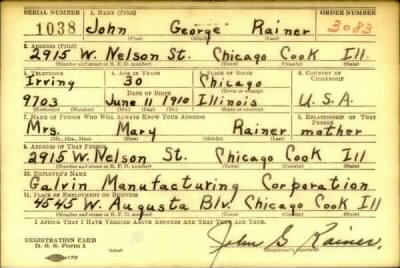 SERIAL NUMBER 1. NAME (Print) ORDER NUMBER
1038 John George Rainer 3083
(First) (Middle) (Last)
2. ADDRESS (Print)
2915 W. Nelson St. Chicago Cook Ill.
(Number and street or R. F. D. number) (Town) (County) (State)
3. TELEPHONE 4. AGE IN YEARS 5. PLACE OF BIRTH 6. COUNTRY OF CITIZENSHIP
Irving 30 Chicago
DATE OF BIRTH (Town or county)
9703 June 11 1910 Illinois U.S.A.
(Exchange) (Number) (Mo.) (Day) (Yr.) (State or country)
7. NAME OF PERSON WHO WILL ALWAYS KNOW YOUR ADDRESS 8. RELATIONSHIP OF THAT PERSON
Mrs. Mary Rainer mother
(Mr., Mrs., Miss) (First) (Middle) (Last)
9. ADDRESS OF THAT PERSON
2915 W. Nelson St. Chicago Cook Ill
(Number and street or R. F. D. number) (Town) (County) (State)
10. EMPLOYER'S NAME
Galvin Manufacturing Corporation
11. PLACE OF EMPLOYMENT OR BUSINESS
4545 W. Augusta Blv. Chicago Cook Ill
(Number and street or R. F. D. number) (Town) (County) (State)
I AFFIRM THAT I HAVE VERIFIED ABOVE ANSWERS AND THAT THEY ARE TRUE.
REGISTRATION CARD
D. S. S. Form 1 John G Rainer
(Registrant's signature)